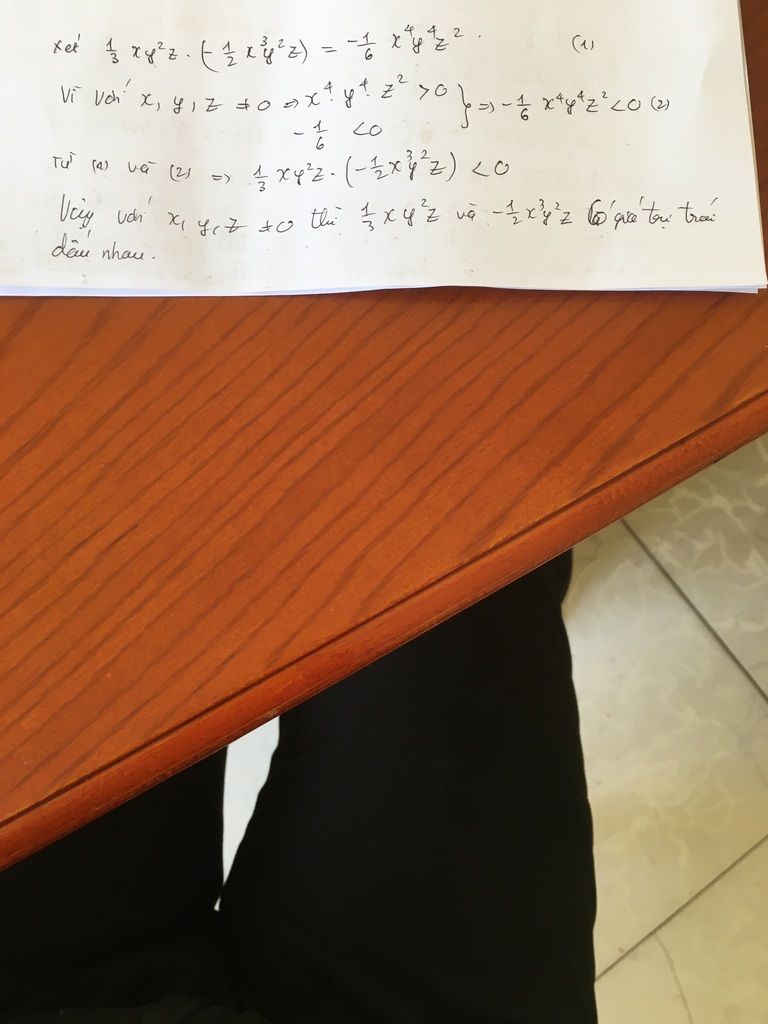 Xét 1/3 xy²z . (-1/2 x³y²z) = -1/6 x⁴y⁴z². (1)
Vì với x, y, z ≠ 0 => x⁴. y⁴. z² > 0 } => -1/6 x⁴y⁴z² < 0 (2)
-1/6 < 0
Từ (1) và (2) => 1/3 xy²z. (-1/2 x³y²z) < 0
Vậy với x, y, z ≠ 0 thì 1/3 xy²z và -1/2 x³y²z có giá trị trái
dấu nhau.